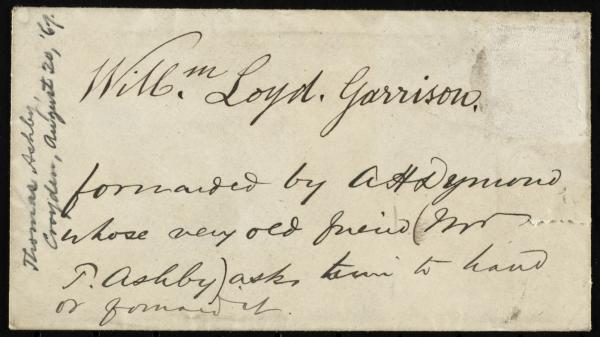 Will.m Loyd. Garrison.
forwarded by AHDymond
whose very old friend (Mr
T. Ashby) asks him to hand
or forward it.
Thomas Ashby,
Croyden, August 20, '67.